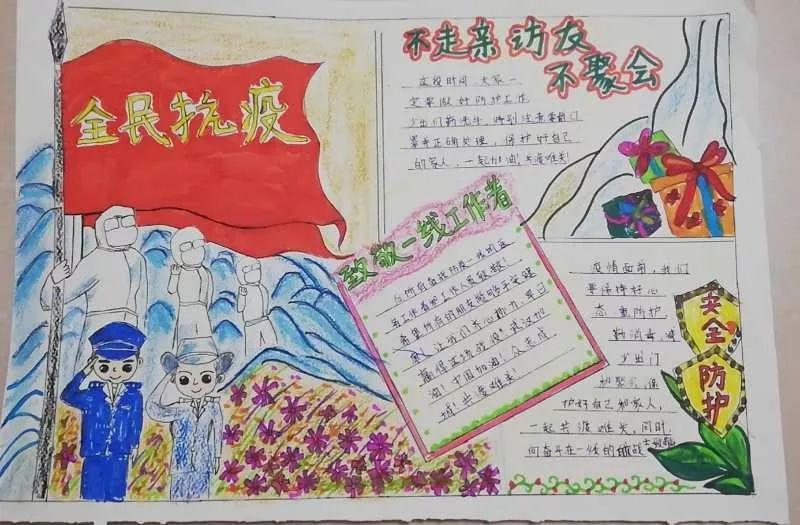 全民抗疫
不走亲访友
不聚会
疫情时间,大家一
定要做好防护工作
少出门
要正确处理,保护好自己
的家人,一起加油,共渡难关!
致敬一线工作者
向所有奋战防疫一线的医
务工作者和工作人员致敬!
希望所有的朋友能够平安健
康!让我们齐心协力,早日
赢得这场战役"武汉加
油!中国加油!众志成
城!共渡难关!
疫情面前,我们
要保持好心
态,重防护
勤消毒,
少出门
和聚会,保
护好自己和家人,
一起共渡难关,同时,
向奋斗在一线的
安全
防护